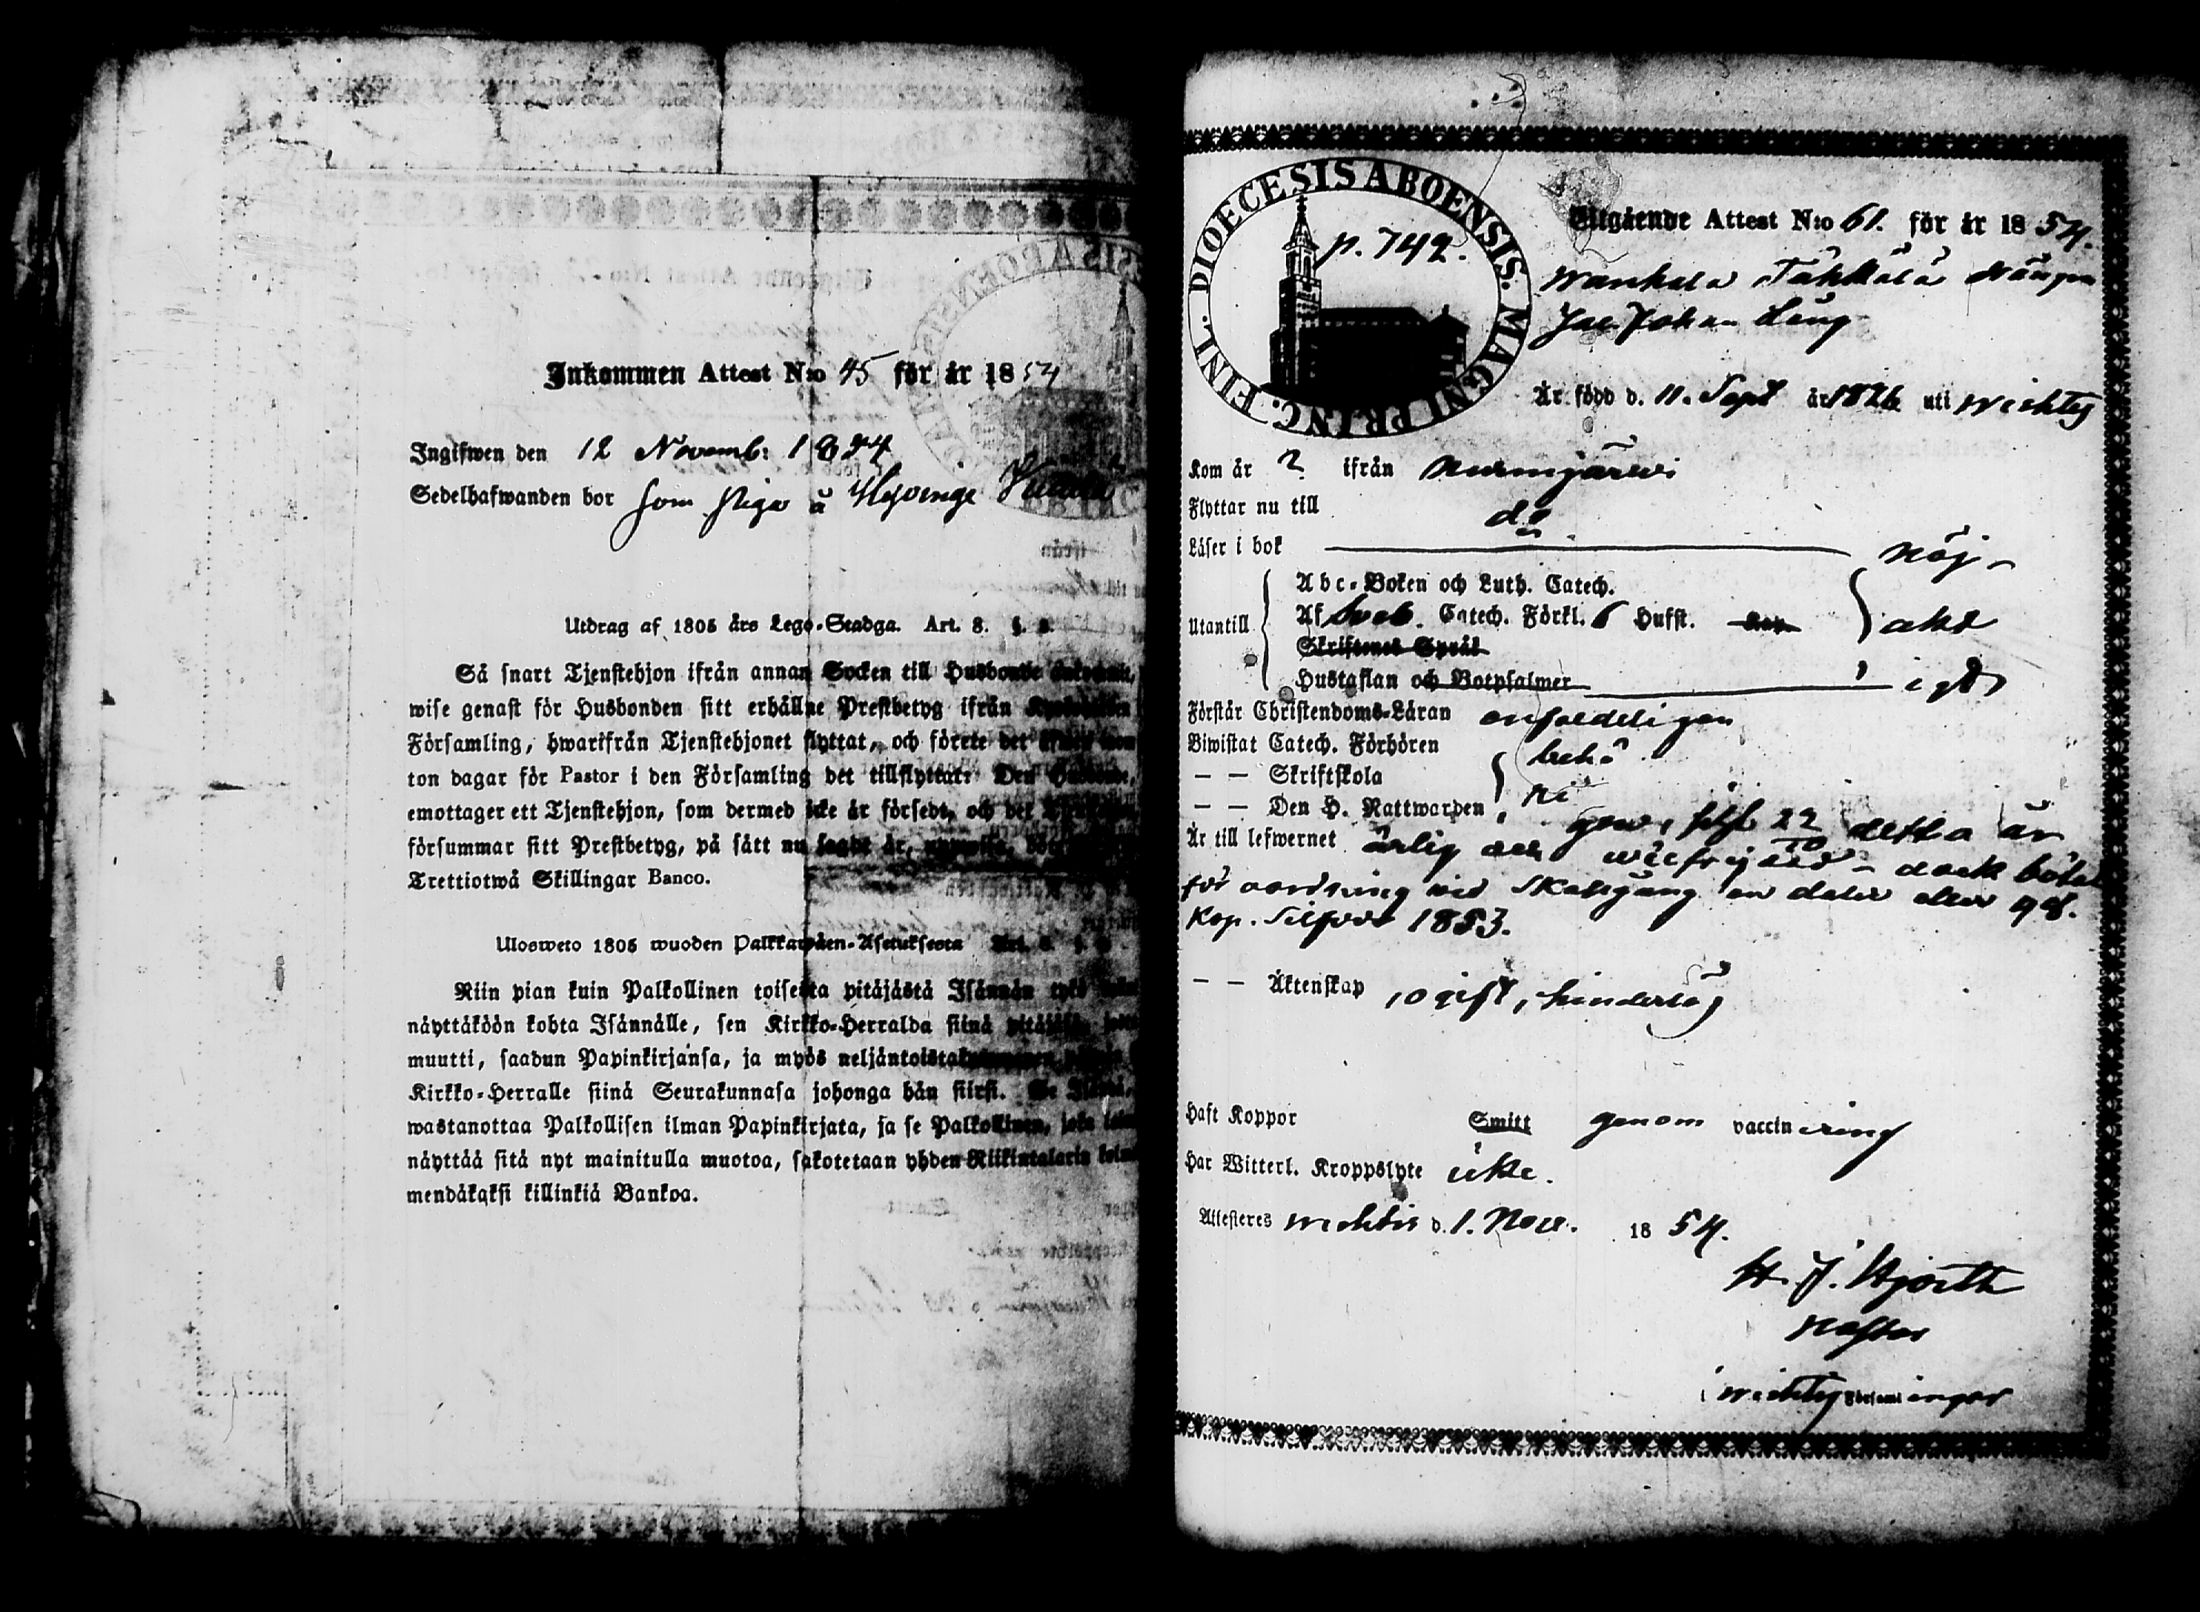 Inkommen Attest N:o 45 för år 1854
Ingifwen den 12 Novemb: 1854
Sedelhafwanden bor som piga å Hyvinge
Utdrag af 1805 års Lego-Stadga. Art. 8. §.
Så snart Tjenstehjon ifrån annan Socken till Husbonde
wise genast för Husbonden sitt erhållne Prestbetyg ifrån
Församling, hwarifrån Tjenstehjonet flyttat, och förete det
ton dagar för Pastor i den Församling det tillflyttat: Den
emottager ett Tjenstehjon, som dermed icke är försedt, och det
försummar sitt Prestbetyg, på sätt nu sagdt är, uppwisa,
Trettiotwå Skillingar Banco.
Ulosweto 1805 wuoden Palkkawäen-Asetuksesta Art. 8. §.
Niin pian kuin Palkollinen toisesta pitäjästä Isännän tykö
näyttäköön kohta Isännälle, sen Kirkko-Herralda siinä pitäjäsä
muutti, saadun Papinkirjansa, ja myös neljäntoista
Kirkko-Herralle siinä Seurakunnasa johonga hän siirsi. Se Isändä,
wastanottaa Palkollisen ilman Papinkirjata, ja se Palkollinen, joka
näyttää sitä nyt mainitulla muotoa, sakotetaan yhden Riikintalarin
mendäkaksi killinkiä Bankoa.
DIOECESIS ABOENSIS. MAGNI PRINC. FINL.
p. 742.
Utgående Attest N:o 61. för år 1854.
Wanhala Tähkälä
Jac. Johan
Är född d. 11. Sept år 1826 uti Wichtis
Kom år ? ifrån Nurmijärwi
Flyttar nu till do
Läser i bok nöj
Utantill
Abc-Boken och Luth. Catech.
Af Sveb. Catech. Förkl. 6 Hufst.
Skriftenes Språk
Hustaflan och Botpsalmer
Förstår Christendoms-Läran enfaldeligen
Biwistat Catech. Förhören behö
— — Skriftskola
— — Den H. Nattwarden
Är till lefwernet ärlig och detta år
dock böta
för oordning wid Skallgång en daler eller 48.
Kop. Silfver 1853.
— — Äktenskap ogift, hinderlös
Haft Koppor Smitt genom vaccinering
Har Witterl. Kroppslyte icke.
Attesteres Wichtis d. 1. Nov. 1854.
H. J. Hjorth
Pastor
i Wichtis Församlingar